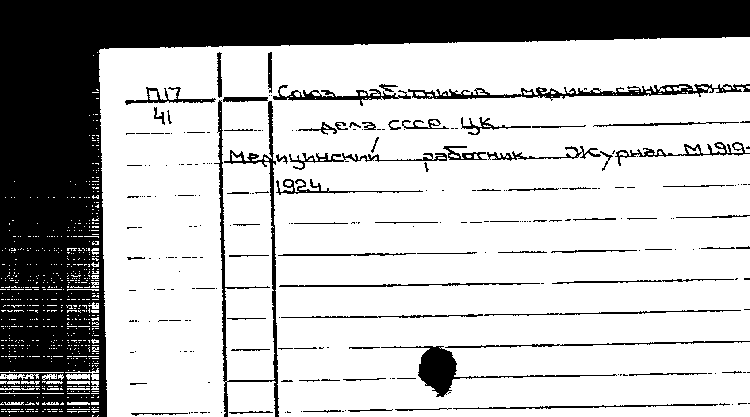 П17
41
Союз работников медико-санитарного
дела СССР. ЦК.
Медицинский работник. Журнал. М 1919-
1924.